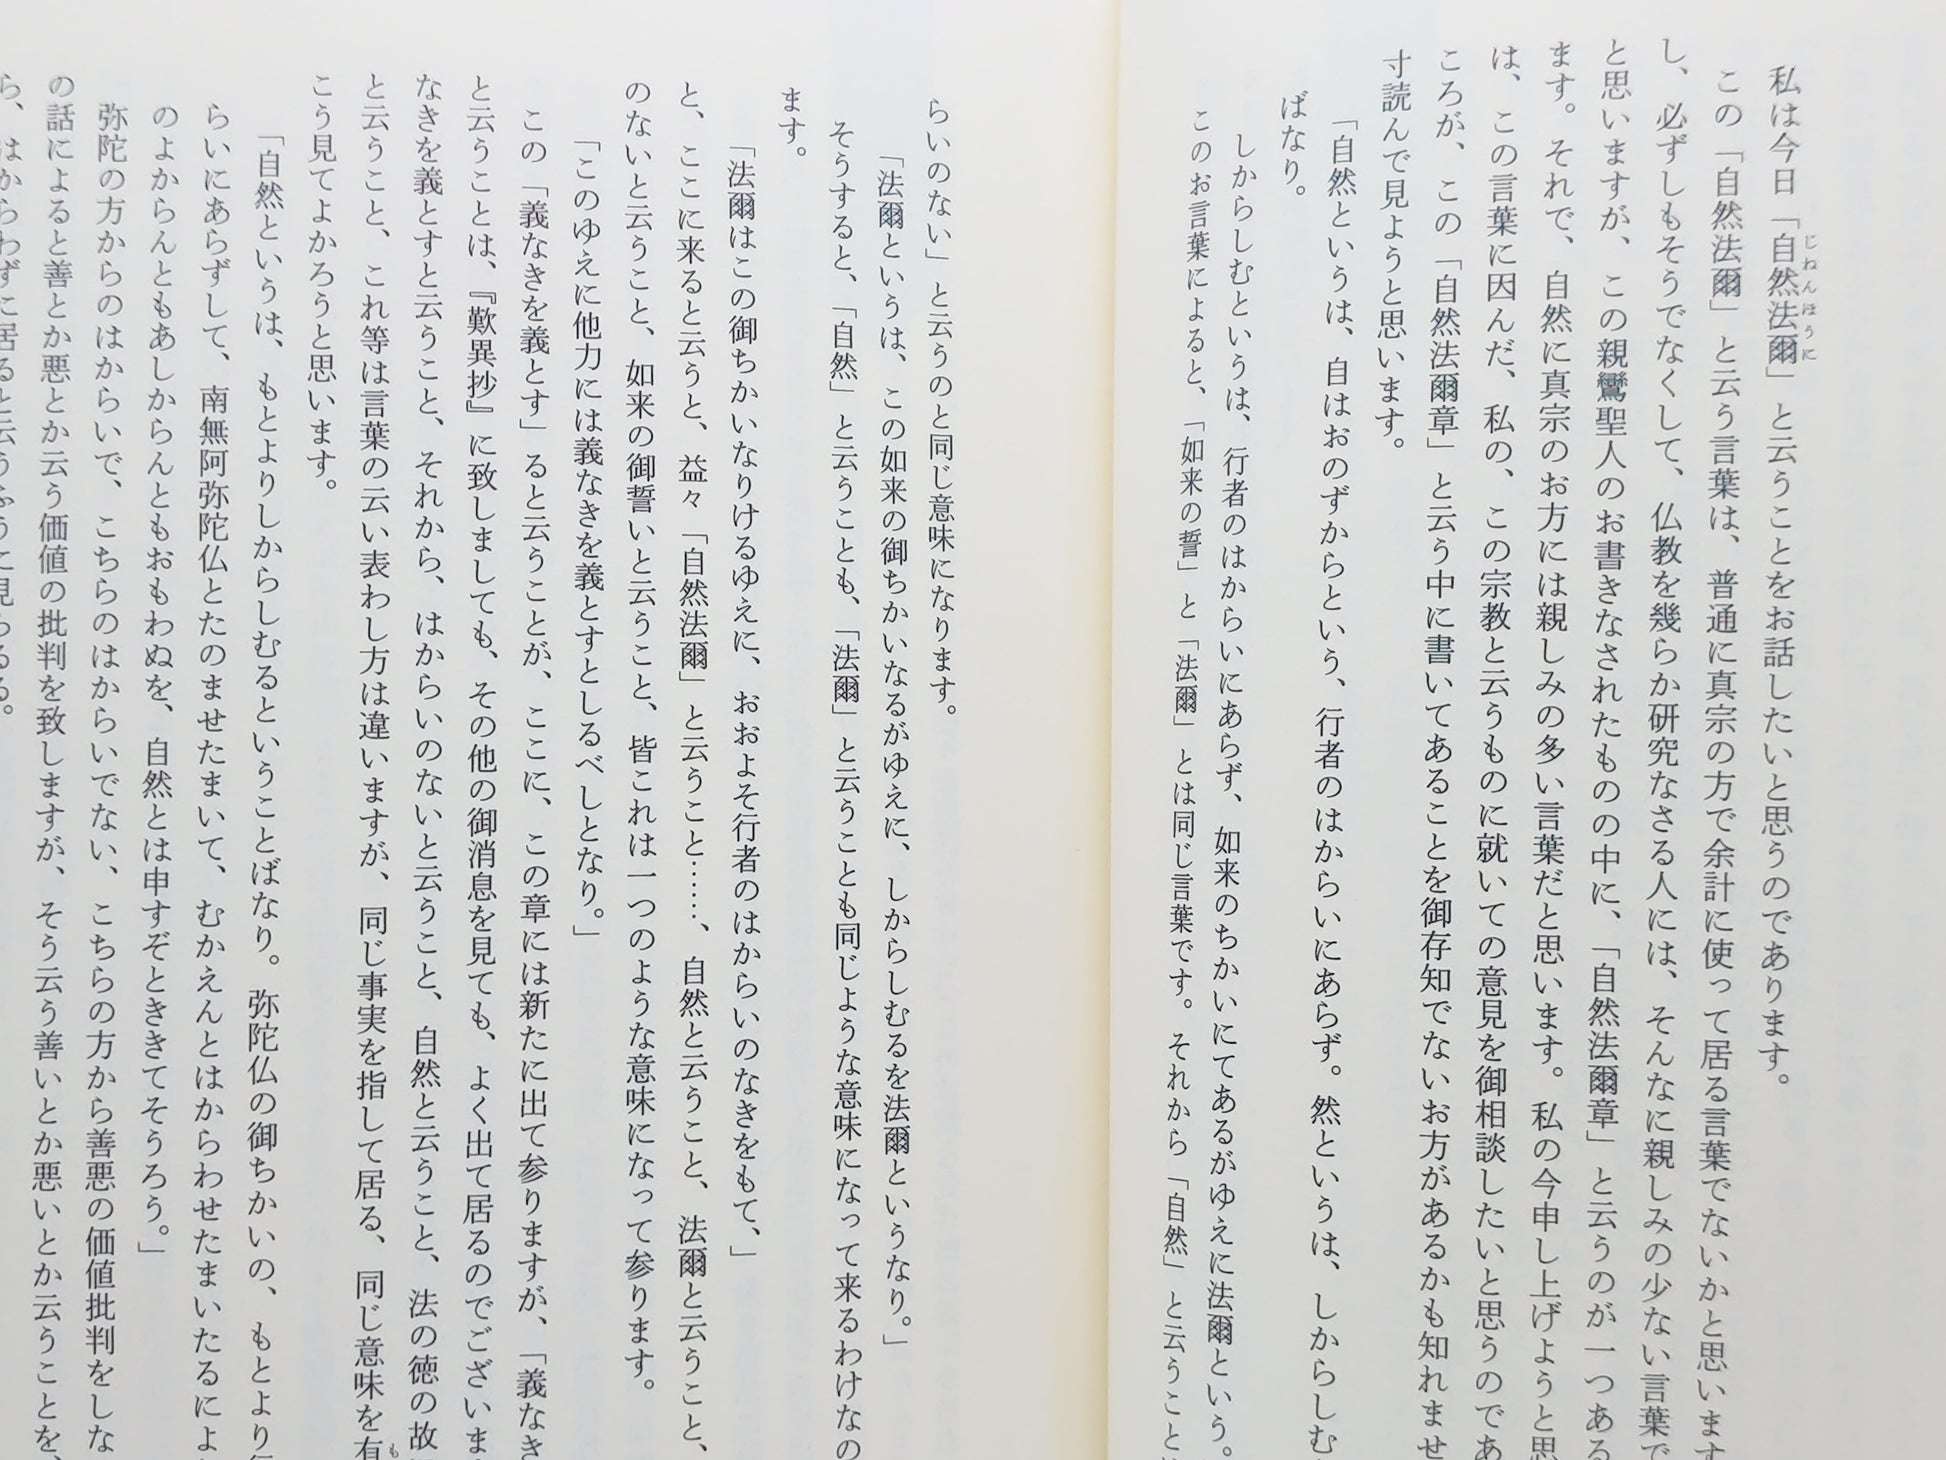 私は今日「自然法爾」と云うことをお話したいと思うのであります。
じねんほうに
この「自然法爾」と云う言葉は、普通に真宗の方で余計に使って居る言葉でないかと思います
し、必ずしもそうでなくして、仏教を幾らか研究なさる人には、そんなに親しみの少ない言葉で
と思いますが、この親鸞聖人のお書きなされたものの中に、「自然法爾章」と云うのが一つある
ます。それで、自然に真宗のお方には親しみの多い言葉だと思います。私の今申し上げようと思
は、この言葉に因んだ、私の、この宗教と云うものに就いての意見を御相談したいと思うのであ
ころが、この「自然法爾章」と云う中に書いてあることを御存知でないお方があるかも知れませ
寸読んで見ようと思います。
「自然というは、自はおのずからという、行者のはからいにあらず。然というは、しからしむ
ばなり。
しからしむというは、行者のはからいにあらず、如来のちかいにてあるがゆえに法爾という。
このお言葉によると、「如来の誓」と「法爾」とは同じ言葉です。それから「自然」と云うこと
らいのない」と云うのと同じ意味になります。
「法爾というは、この如来の御ちかいなるがゆえに、しからしむるを法爾というなり。」
そうすると、「自然」と云うことも、「法爾」と云うことも同じような意味になって来るわけなの
ます。
「法爾はこの御ちかいなりけるゆえに、おおよそ行者のはからいのなきをもて、」
と、ここに来ると云うと、益々「自然法爾」と云うこと……、自然と云うこと、法爾と云うこと、
のないと云うこと、如来の御誓いと云うこと、皆これは一つのような意味になって参ります。
「このゆえに他力には義なきを義とすとしるべしとなり。」
この「義なきを義とす」ると云うことが、ここに、この章には新たに出て参りますが、「義なき
と云うことは、『歎異抄』に致しましても、その他の御消息を見ても、よく出て居るのでございま
なきを義とすと云うこと、それから、はからいのないと云うこと、自然と云うこと、法の徳の故
と云うこと、これ等は言葉の云い表わし方は違いますが、同じ事実を指して居る、同じ意味を有
も
こう見てよかろうと思います。
「自然というは、もとよりしからしむるということばなり。弥陀仏の御ちかいの、もとより行
らいにあらずして、南無阿弥陀仏とたのませたまいて、むかえんとはからわせたまいたるによ
のよからんともあしからんともおもわぬを、自然とは申すぞとききてそうろう。」
弥陀の方からのはからいで、こちらのはからいでない、こちらの方から善悪の価値批判をしな
の話によると善とか悪とか云う価値の批判を致しますが、そう云う善いとか悪いとか云うことを、
ら、はからわずに居ると云うふうに見らるる。